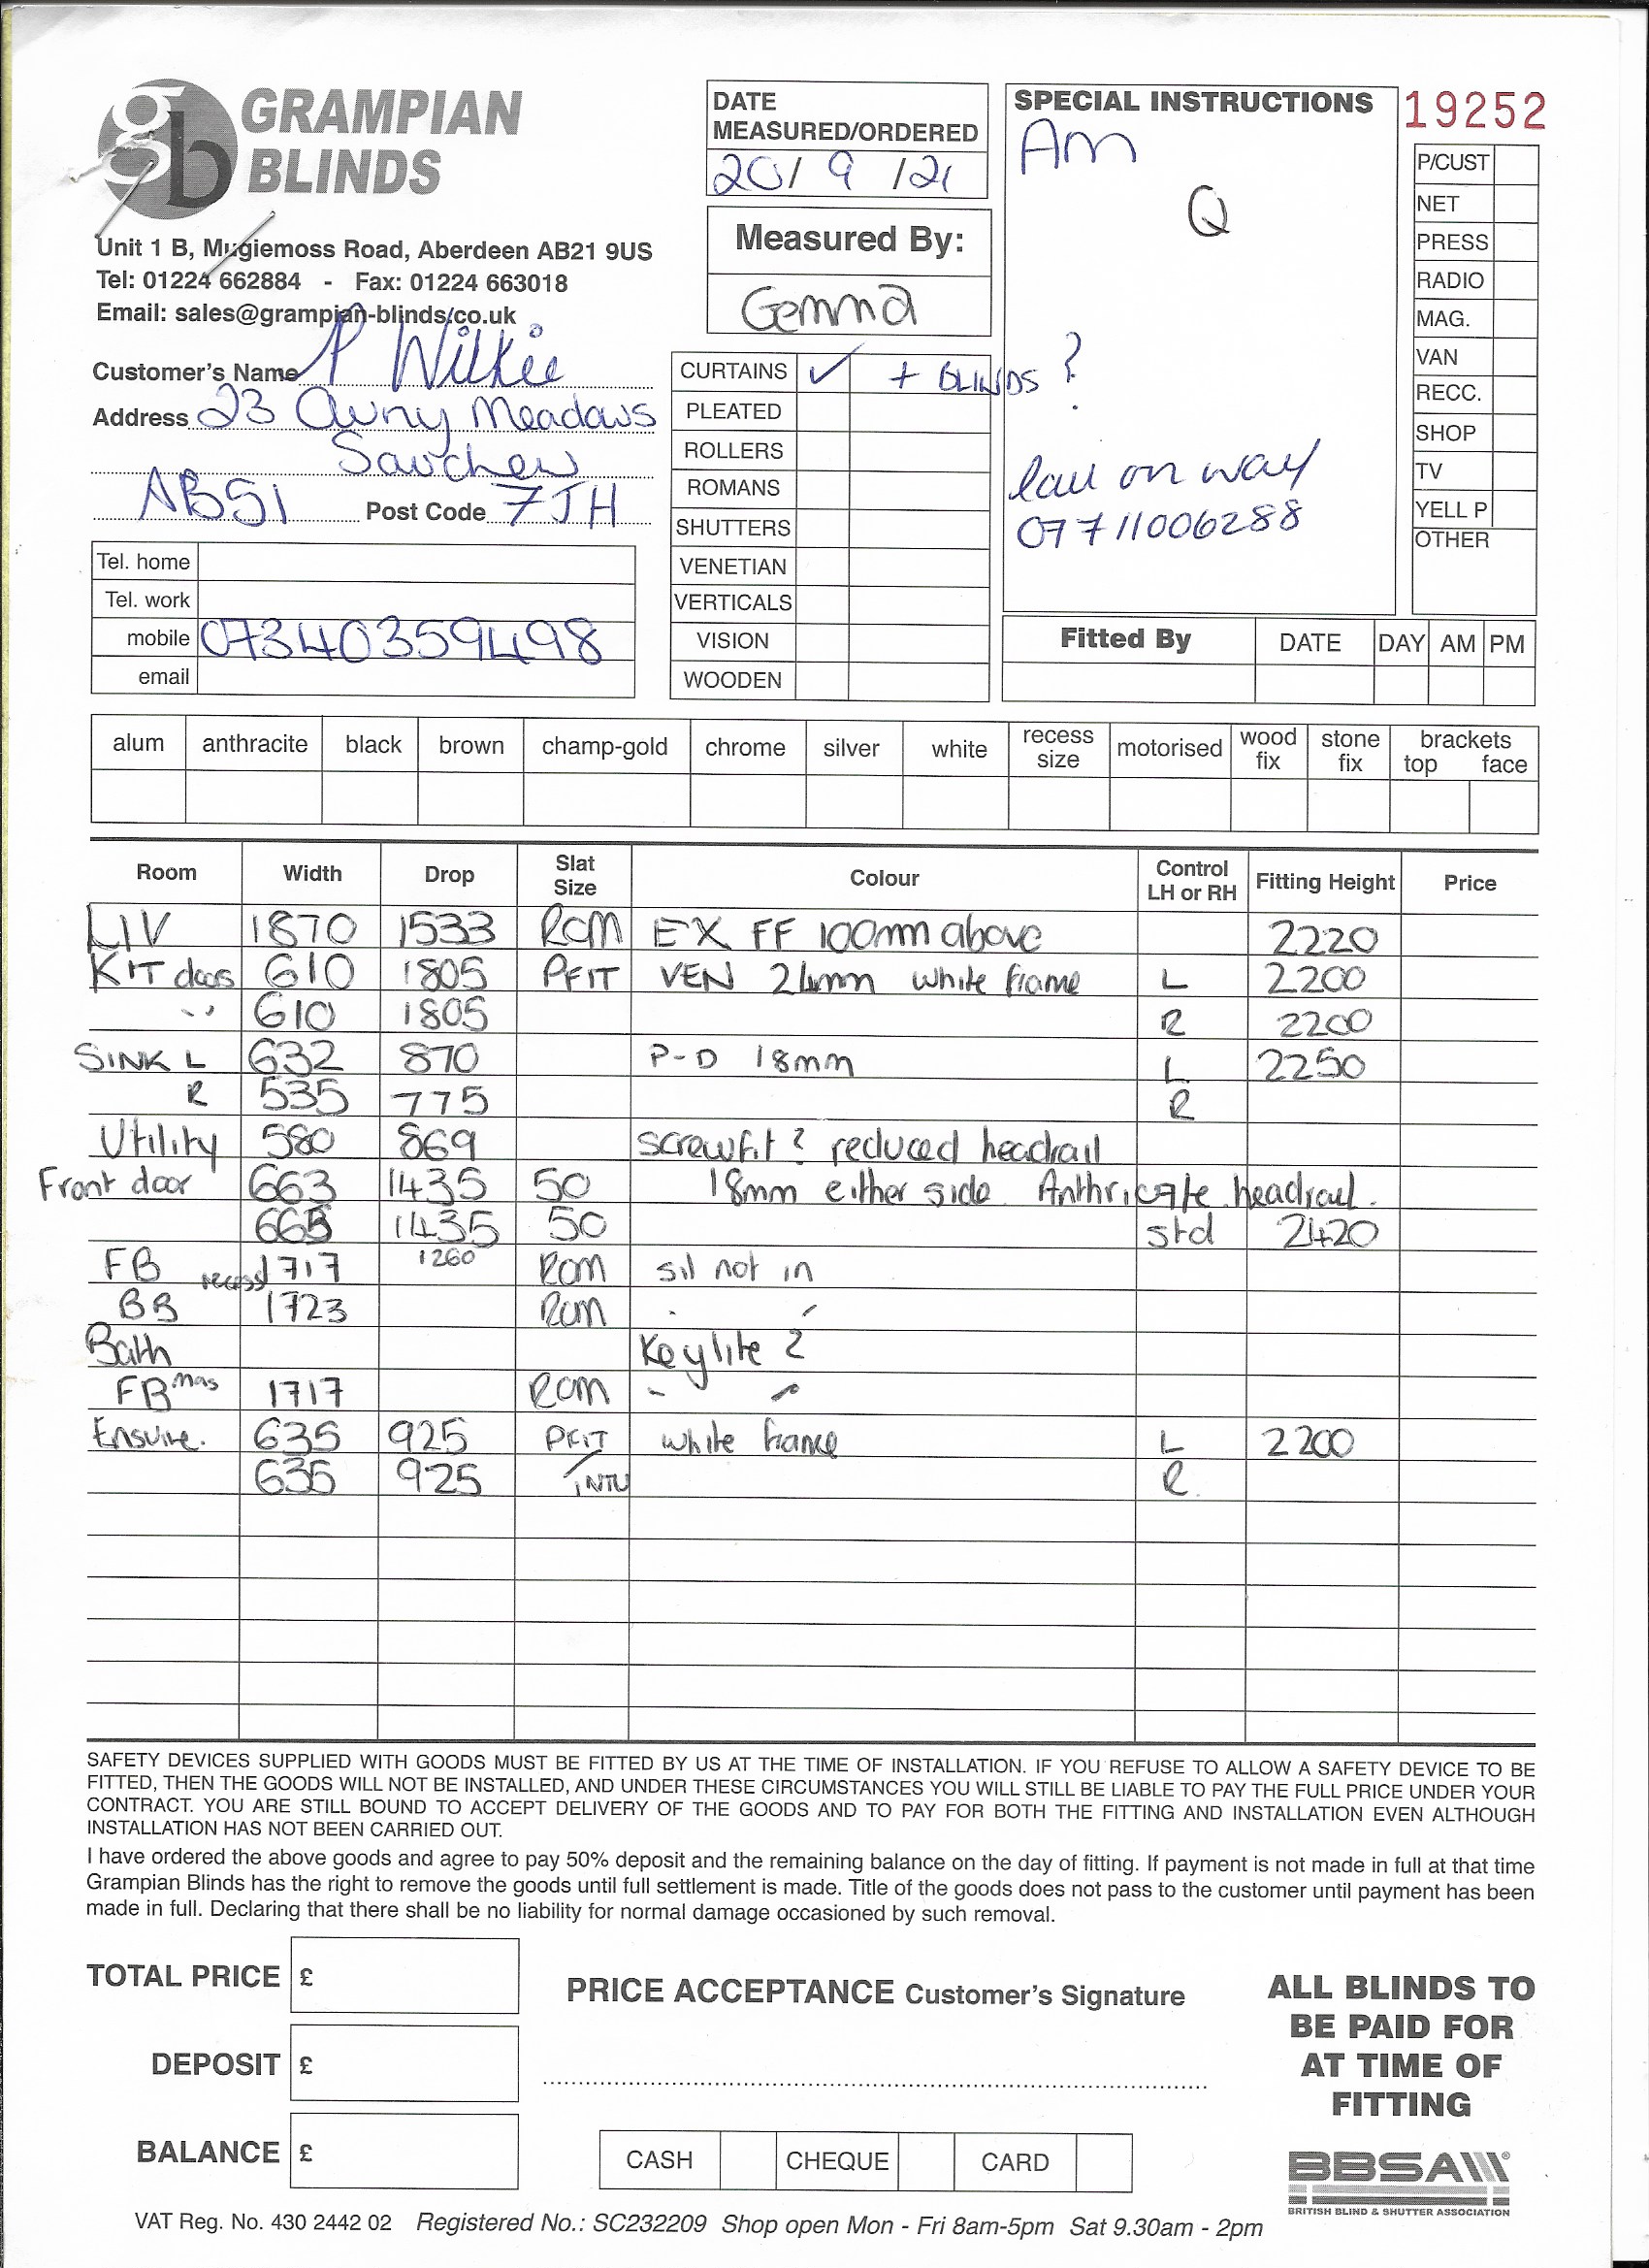 GRAMPIAN
BLINDS
Unit 1 B, Mugiemoss Road, Aberdeen AB21 9US
Tel: 01224 662884 - Fax: 01224 663018
Email: sales@grampian-blinds.co.uk
Customer's Name P Wilkie
Address 23 Meadows
Sauchen
AB51 Post Code 7JH
Tel. home
Tel. work
mobile 07340359498
email
DATE
MEASURED/ORDERED
20/ 9 /21
Measured By:
Gemma
CURTAINS ✓ + BLINDS ?
PLEATED
ROLLERS
ROMANS
SHUTTERS
VENETIAN
VERTICALS
VISION
WOODEN
SPECIAL INSTRUCTIONS
Am
Q
call on way
07711006288
19252
P/CUST
NET
PRESS
RADIO
MAG.
VAN
RECC.
SHOP
TV
YELL P
OTHER
Fitted By DATE DAY AM PM
alum anthracite black brown champ-gold chrome silver white recess size motorised wood fix stone fix brackets top face
Room Width Drop Slat Size Colour Control LH or RH Fitting Height Price
LIV 1870 1533 Rom EX FF 100mm above 2220
KIT doors 610 1805 PFIT VEN 24mm white frame L 2200
" 610 1805 R 2200
SINK L 632 870 P-D 18mm L 2250
R 535 775 R
Utility 580 869 screwfit ? reduced headrail
Front door 663 1435 50 18mm either side Anthricate headrail.
665 1435 50 std 2420
FB recess 1717 1260 Rom sil not in
BB 1723 Rom " "
Bath Keylite ?
FB mas 1717 Rom " "
Ensuite. 635 925 PFIT white frame L 2200
635 925 / INTU R
SAFETY DEVICES SUPPLIED WITH GOODS MUST BE FITTED BY US AT THE TIME OF INSTALLATION. IF YOU REFUSE TO ALLOW A SAFETY DEVICE TO BE
FITTED, THEN THE GOODS WILL NOT BE INSTALLED, AND UNDER THESE CIRCUMSTANCES YOU WILL STILL BE LIABLE TO PAY THE FULL PRICE UNDER YOUR
CONTRACT. YOU ARE STILL BOUND TO ACCEPT DELIVERY OF THE GOODS AND TO PAY FOR BOTH THE FITTING AND INSTALLATION EVEN ALTHOUGH
INSTALLATION HAS NOT BEEN CARRIED OUT.
I have ordered the above goods and agree to pay 50% deposit and the remaining balance on the day of fitting. If payment is not made in full at that time
Grampian Blinds has the right to remove the goods until full settlement is made. Title of the goods does not pass to the customer until payment has been
made in full. Declaring that there shall be no liability for normal damage occasioned by such removal.
TOTAL PRICE £
DEPOSIT £
BALANCE £
PRICE ACCEPTANCE Customer's Signature
CASH CHEQUE CARD
ALL BLINDS TO
BE PAID FOR
AT TIME OF
FITTING
BBSA
BRITISH BLIND & SHUTTER ASSOCIATION
VAT Reg. No. 430 2442 02 Registered No.: SC232209 Shop open Mon - Fri 8am-5pm Sat 9.30am - 2pm